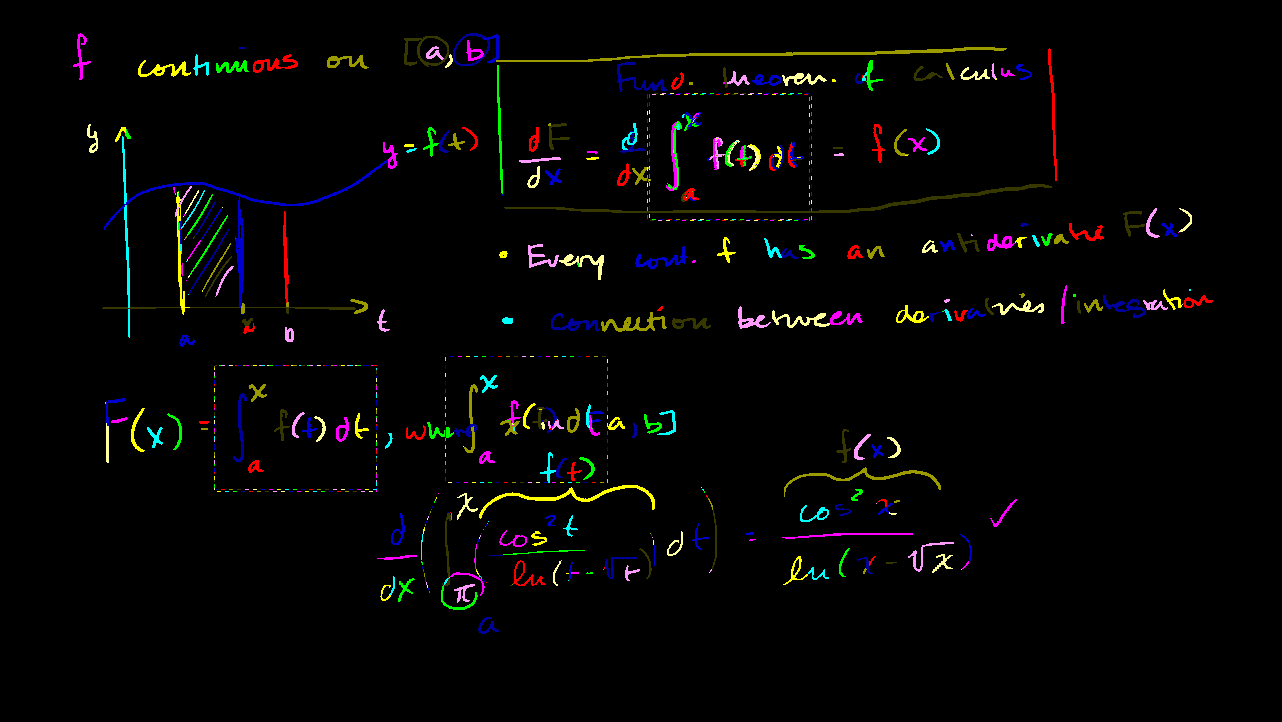 f continuous on [a, b]
Fund. theorem. of calculus
dF/dx = d/dx ∫_a^x f(t) dt = f(x)
y
y = f(t)
a x b t
• Every cont. f has an antiderivative F(x)
• connection between derivatives / integration
F(x) = ∫_a^x f(t) dt, where x in [a, b]
∫_a^x f(t) dt
f(t) f(x)
d/dx ( ∫_π^x ( cos² t / ln(t - √t) ) dt ) = cos² x / ln(x - √x) ✓
a